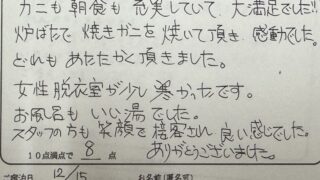 カニも朝食も充実していて、大満足でした!!
炉ばたで焼きガニを焼いて頂き、感動でした。
どれもあたたかく頂きました。
女性脱衣室が少し寒かったです。
お風呂もいい湯でした。
スタッフの方も笑顔で接客され良い感じでした。
10点満点で 8 点 ありがとうございました。
ご宿泊日 12/15 お名前(匿名可)